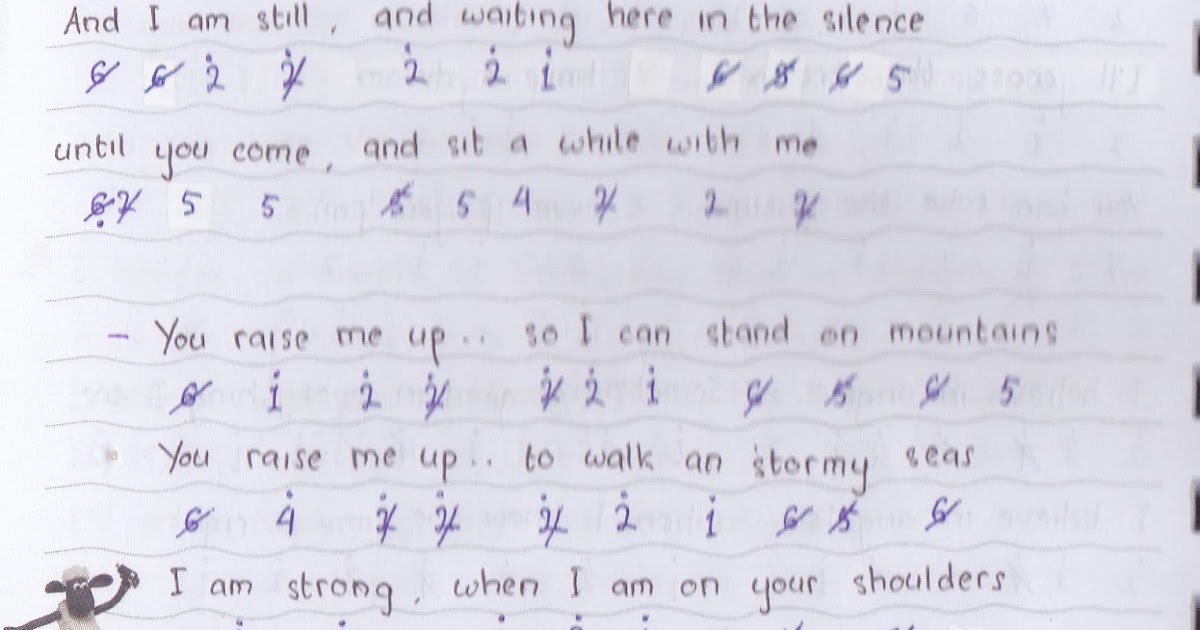 And I am still, and waiting here in the silence
6 6 2 2 2 2 1 6 5 6 5
until you come, and sit a while with me
6 2 5 5 5 5 4 2 2 2
- You raise me up.. so I can stand on mountains
6 1 2 2 2 2 1 6 5 6 5
You raise me up.. to walk an stormy seas
6 4 2 2 2 2 1 6 5 6
I am strong, when I am on your shoulders